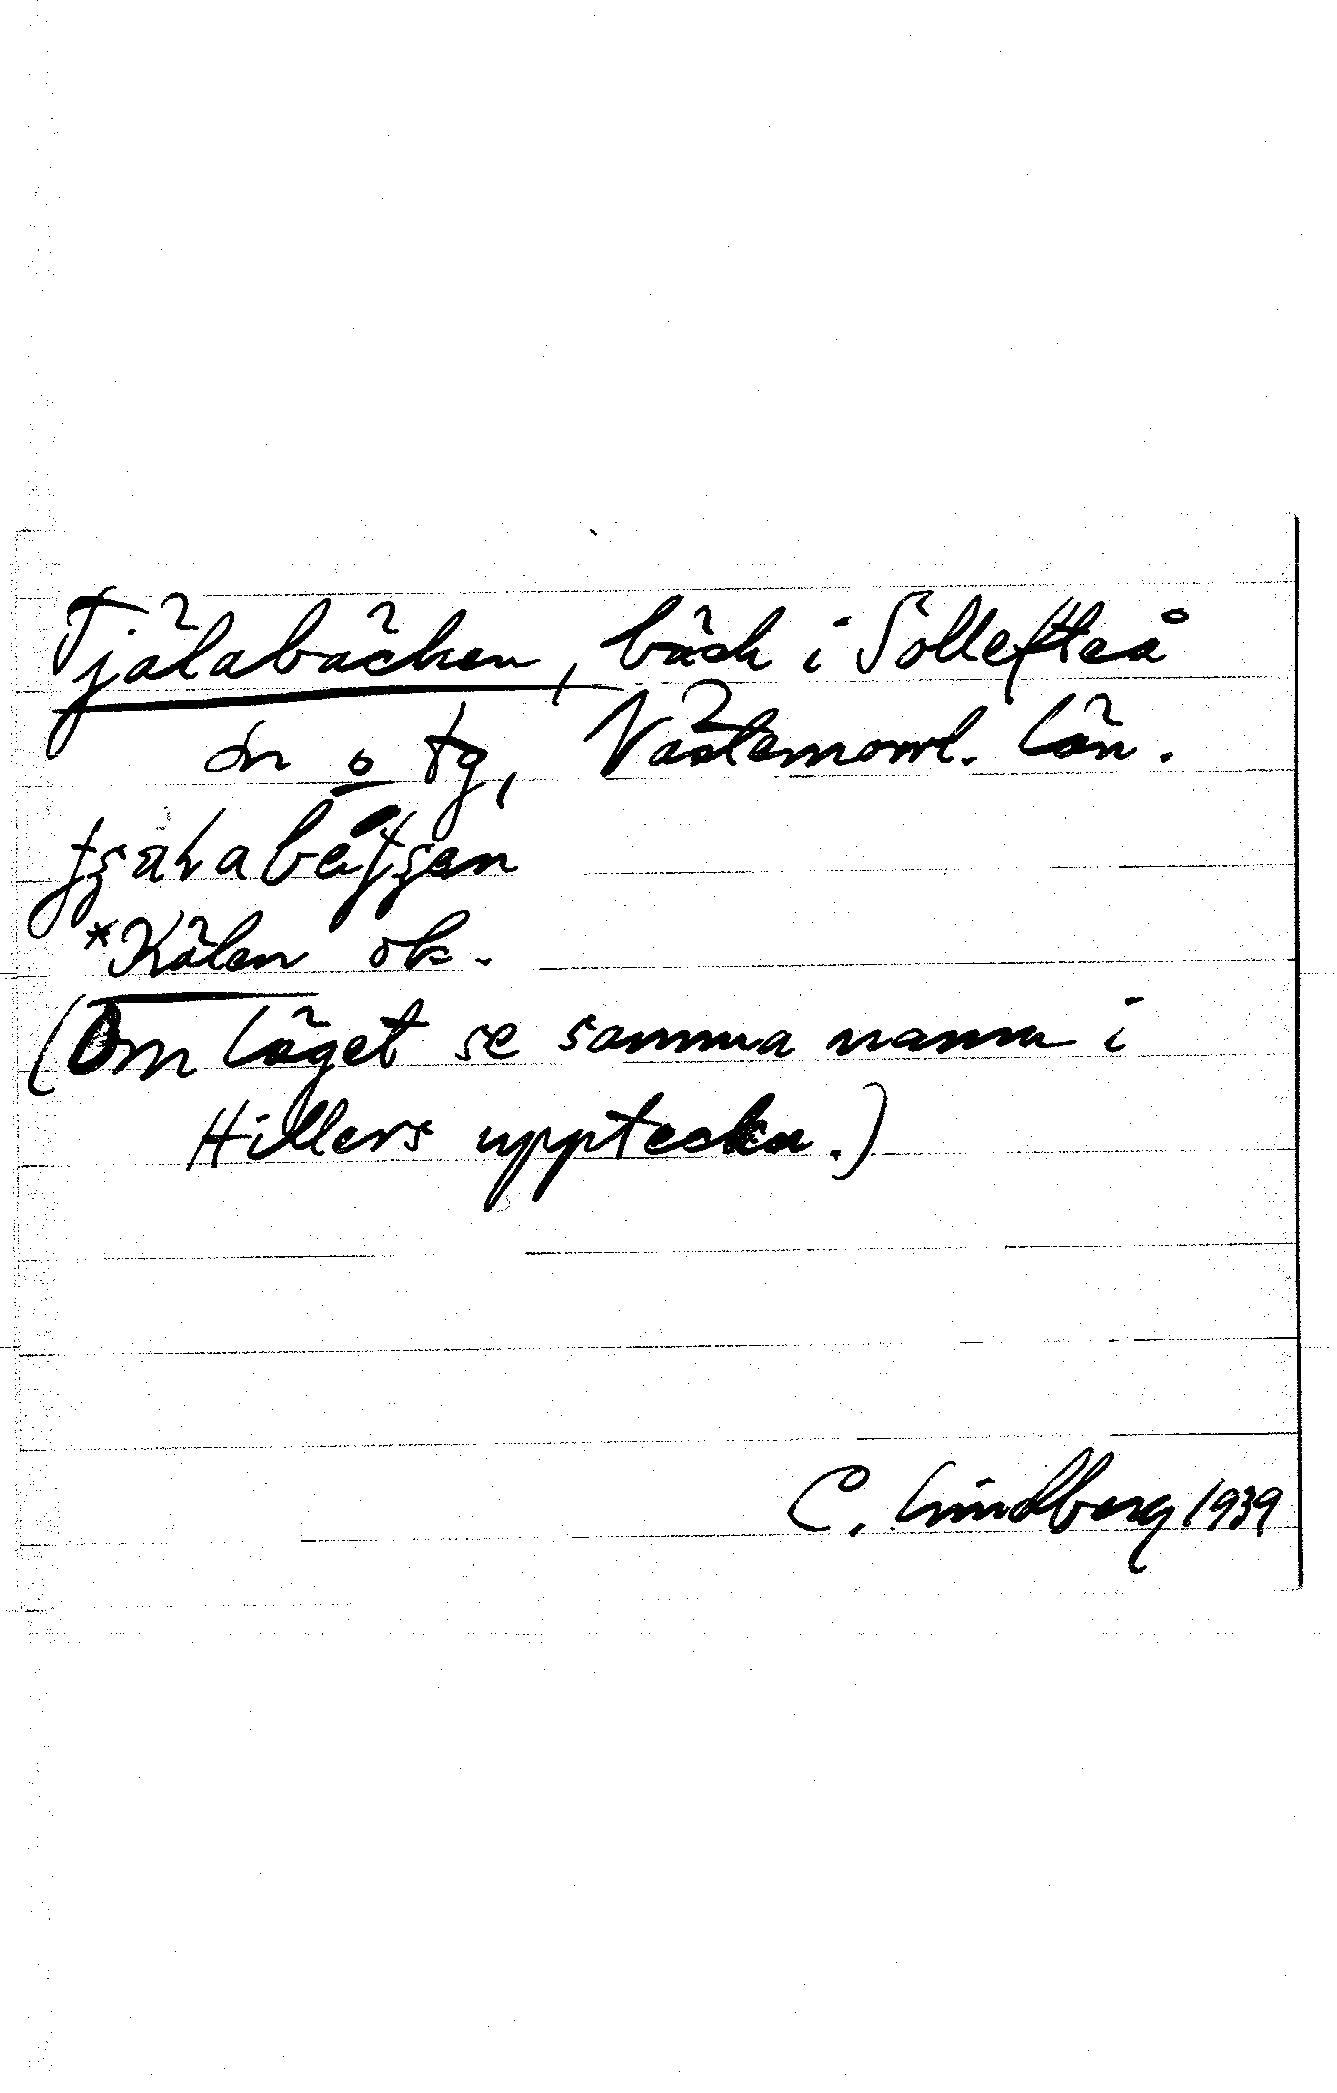 Tjälabäcken, bäck i Sollefteå
sn o tg, Västernorrl. län.
*Kälen ok.
(Om läget se samma namn i
Hillers uppteckn.)
C. Lindberg 1939